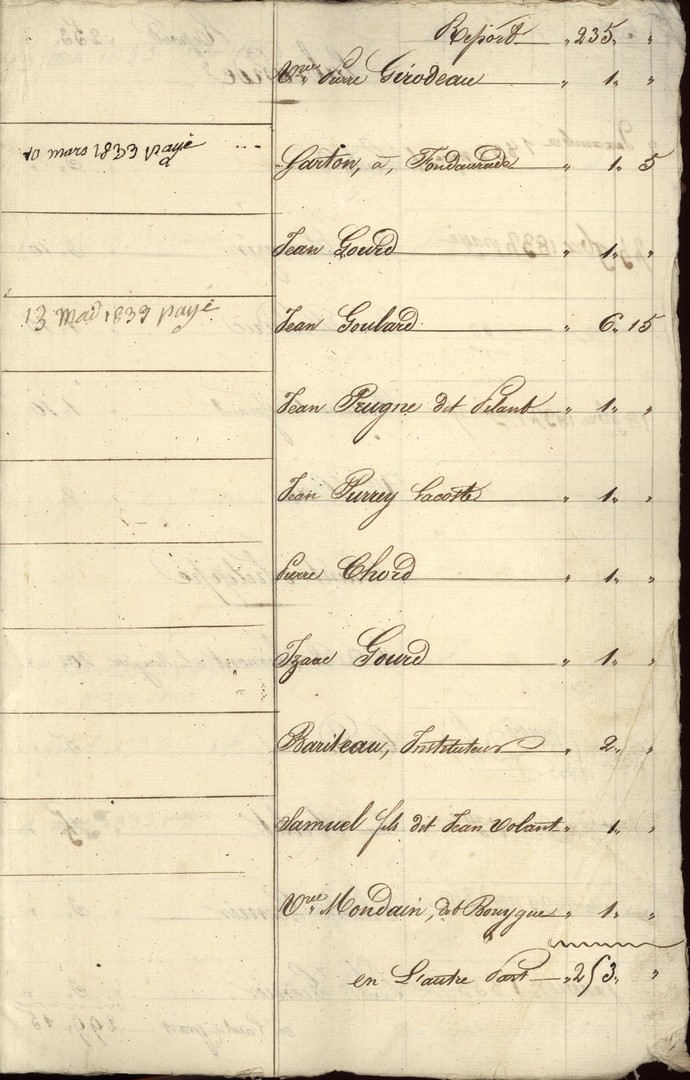 Report " 235 " "
Vve Pierre Girodeau " 1 " "
10 mars 1833 payé ... Garton, à, Fondaurade " 1 " 5
Jean Gourd " 1 " "
13 Mai 1833 payé Jean Goulard " 6 " 15
Jean Prugne dit Pilant " 1 " "
Jean Purrey Lacoste " 1 " "
Pierre Chord " 1 " "
Izaac Gourd " 1 " "
Bariteau, Instituteur " 2 " "
Samuel fils dit Jean Volant " 1 " "
Vve Mondain, dit Bouygue " 1 " "
en L'autre Part " 253 " "